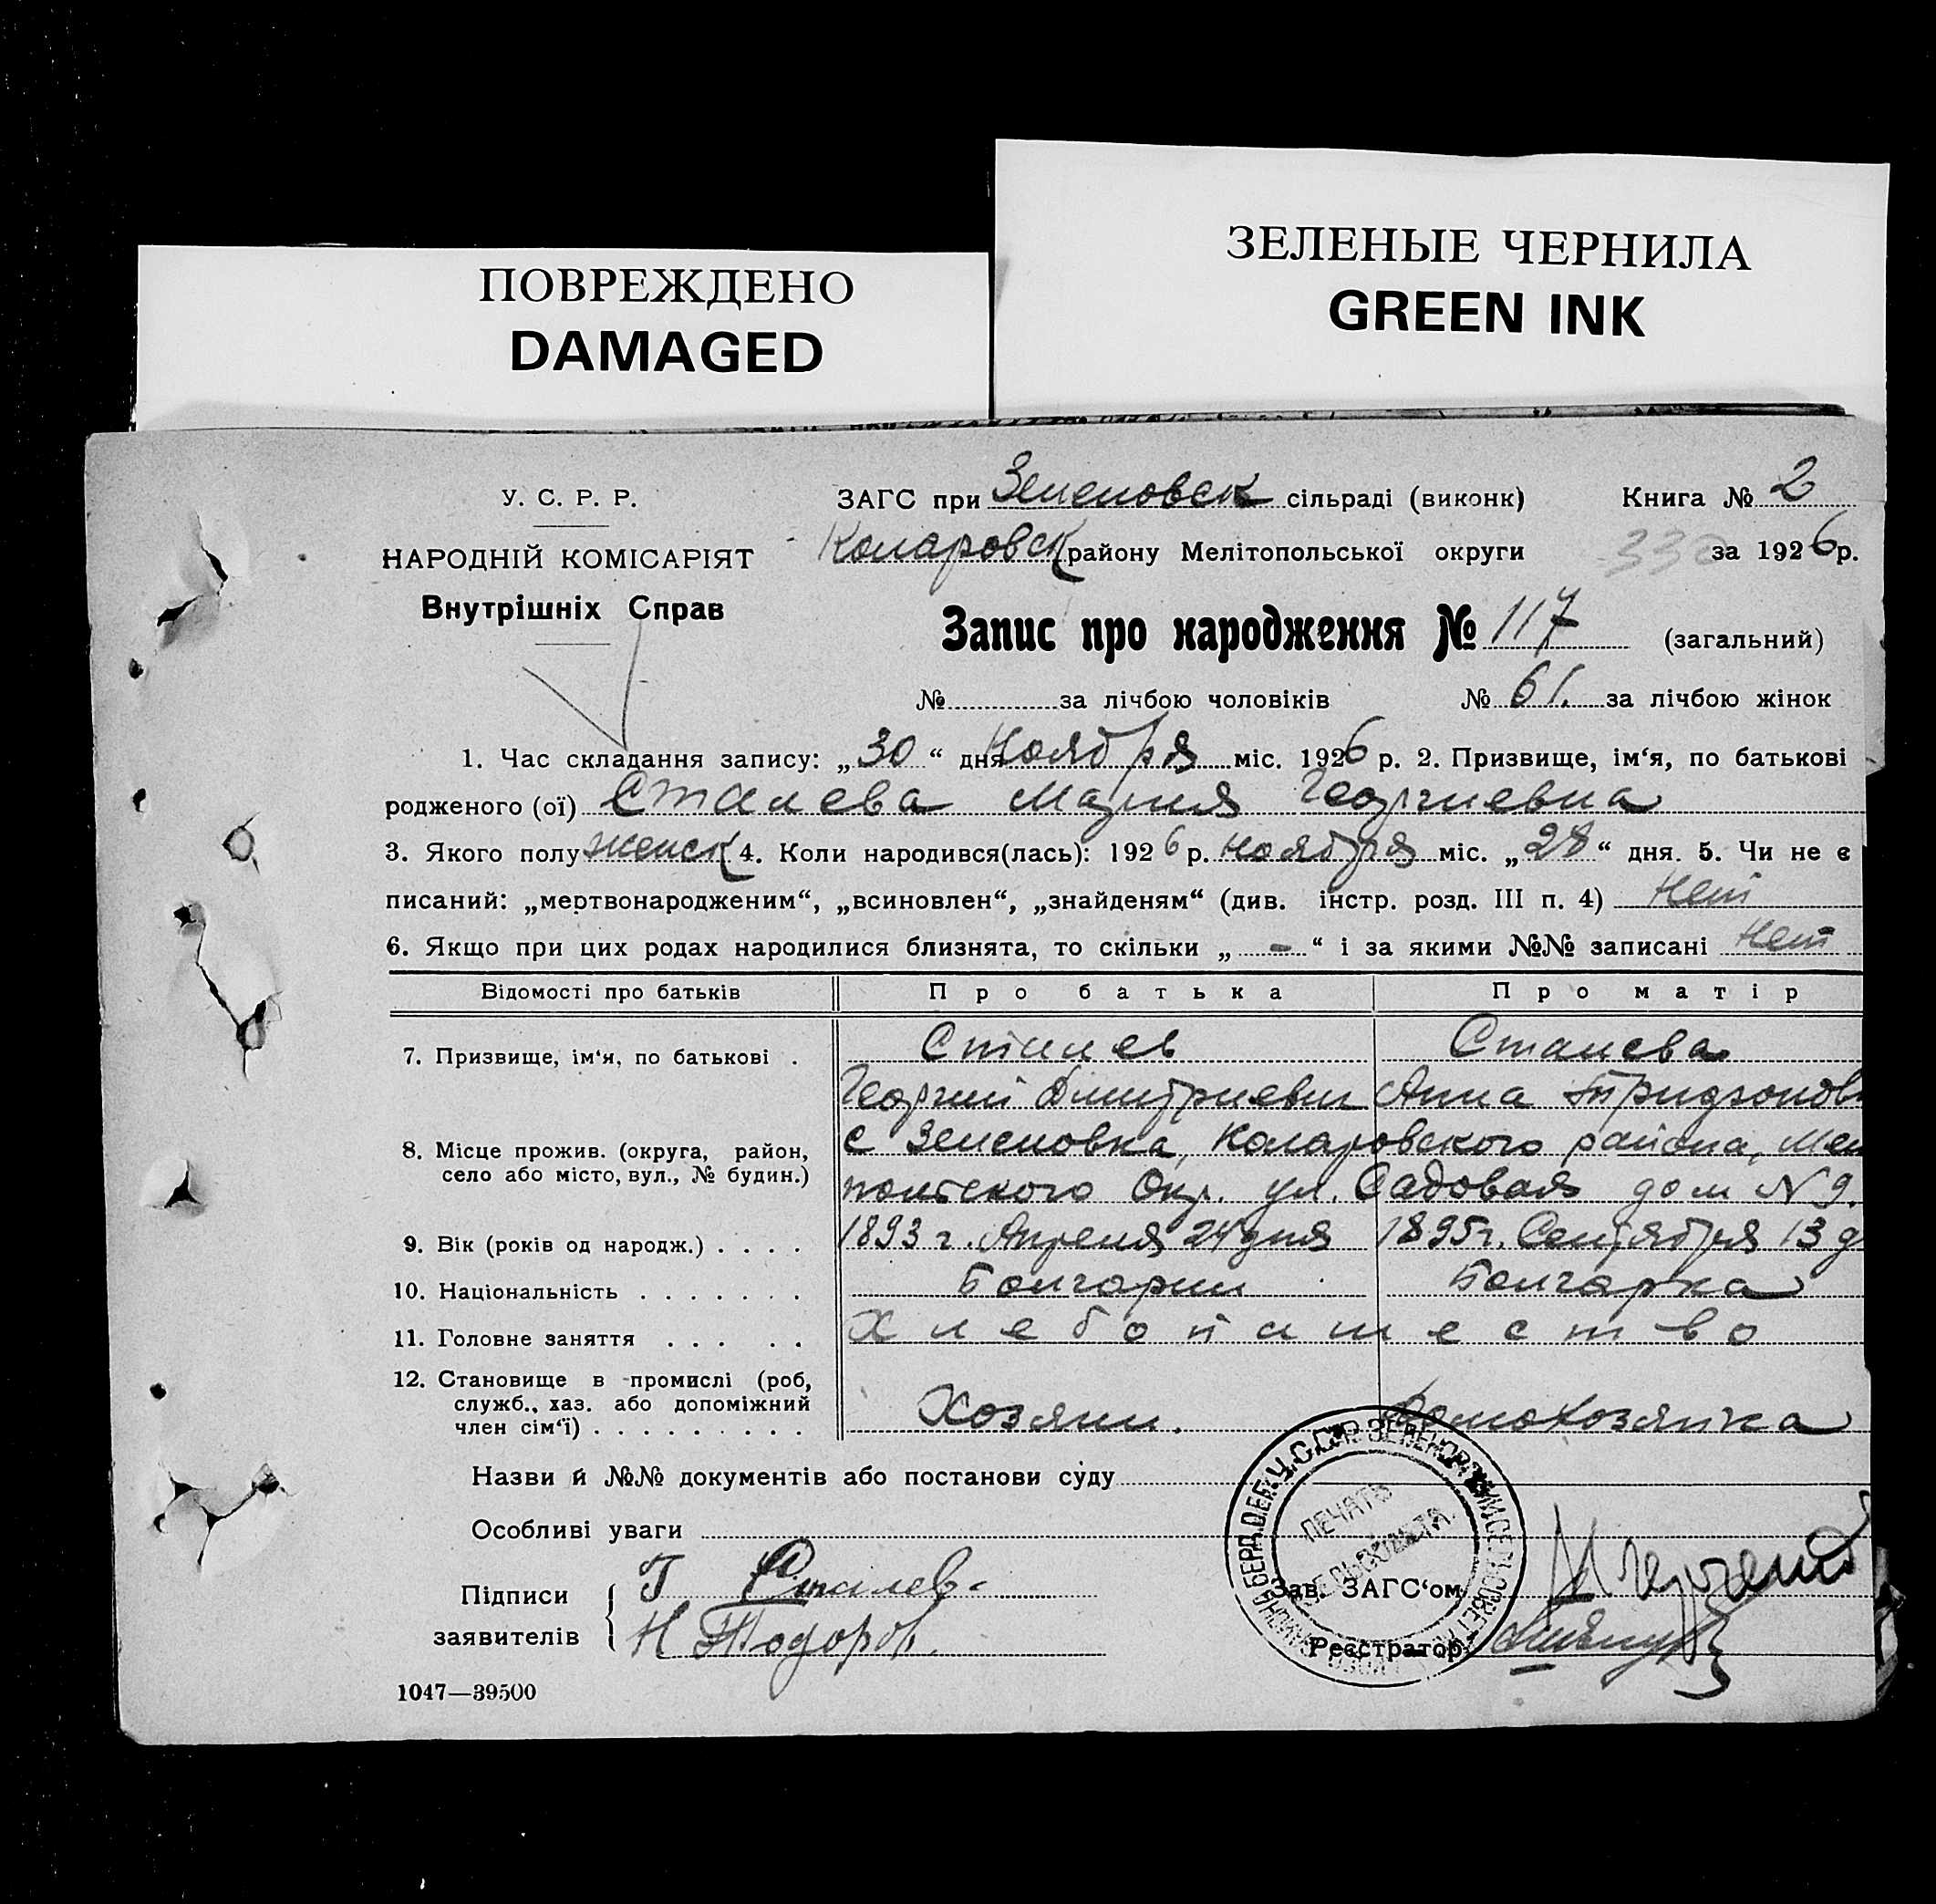 ЗЕЛЕНЫЕ ЧЕРНИЛА
GREEN INK
ПОВРЕЖДЕНО
DAMAGED
У. С. Р. Р.
НАРОДНІЙ КОМІСАРІЯТ
Внутрішніх Справ
ЗАГС при Зеленовск сільраді (виконк) Книга № 2
Коларовск району Мелітопольської округи за 1926 р.
Запис про народження № 117 (загальний)
№ за лічбою чоловіків № 61. за лічбою жінок
1. Час складання запису: „30“ дня Ноября міс. 1926 р. 2. Призвище, ім‘я, по батькові
родженого (ої) Сталева Мария Георгиевна
3. Якого полу женск 4. Коли народився(лась): 1926 р. ноября міс. „28“ дня. 5. Чи не є
писаний: „мертвонародженим“, „всиновлен“, „знайденям“ (див. інстр. розд. III п. 4) Нет
6. Якщо при цих родах народилися близнята, то скільки „-“ і за якими №№ записані Нет
Відомості про батьків Про батька Про матір
7. Призвище, ім‘я, по батькові . Сталев Сталева
Георгий Дмитриевич Анна
8. Місце прожив. (округа, район, село або місто, вул., № будин.) с Зеленовка, Коларовского района, Мели
польского Окр. ул. Садовая дом № 9.
9. Вік (років од народж.) . . . . 1893 г. Апреля 24 дня 1895 г. Сентября 13 д
10. Національність . . . . . . . Болгарин Болгарка
11. Головне заняття . . . . . Хлебопашество
12. Становище в промислі (роб, служб., хаз. або допоміжний член сім‘ї) . . . . . . . . . Хозяин. Домохозяйка
Назви й №№ документів або постанови суду
Особливі уваги
Підписи заявителів Г Сталев
Н Тодоров.
Зав. ЗАГС‘ом
Реєстратор
ПЕЧАТЬ СЕЛЬСОВЕТА
1047—39500